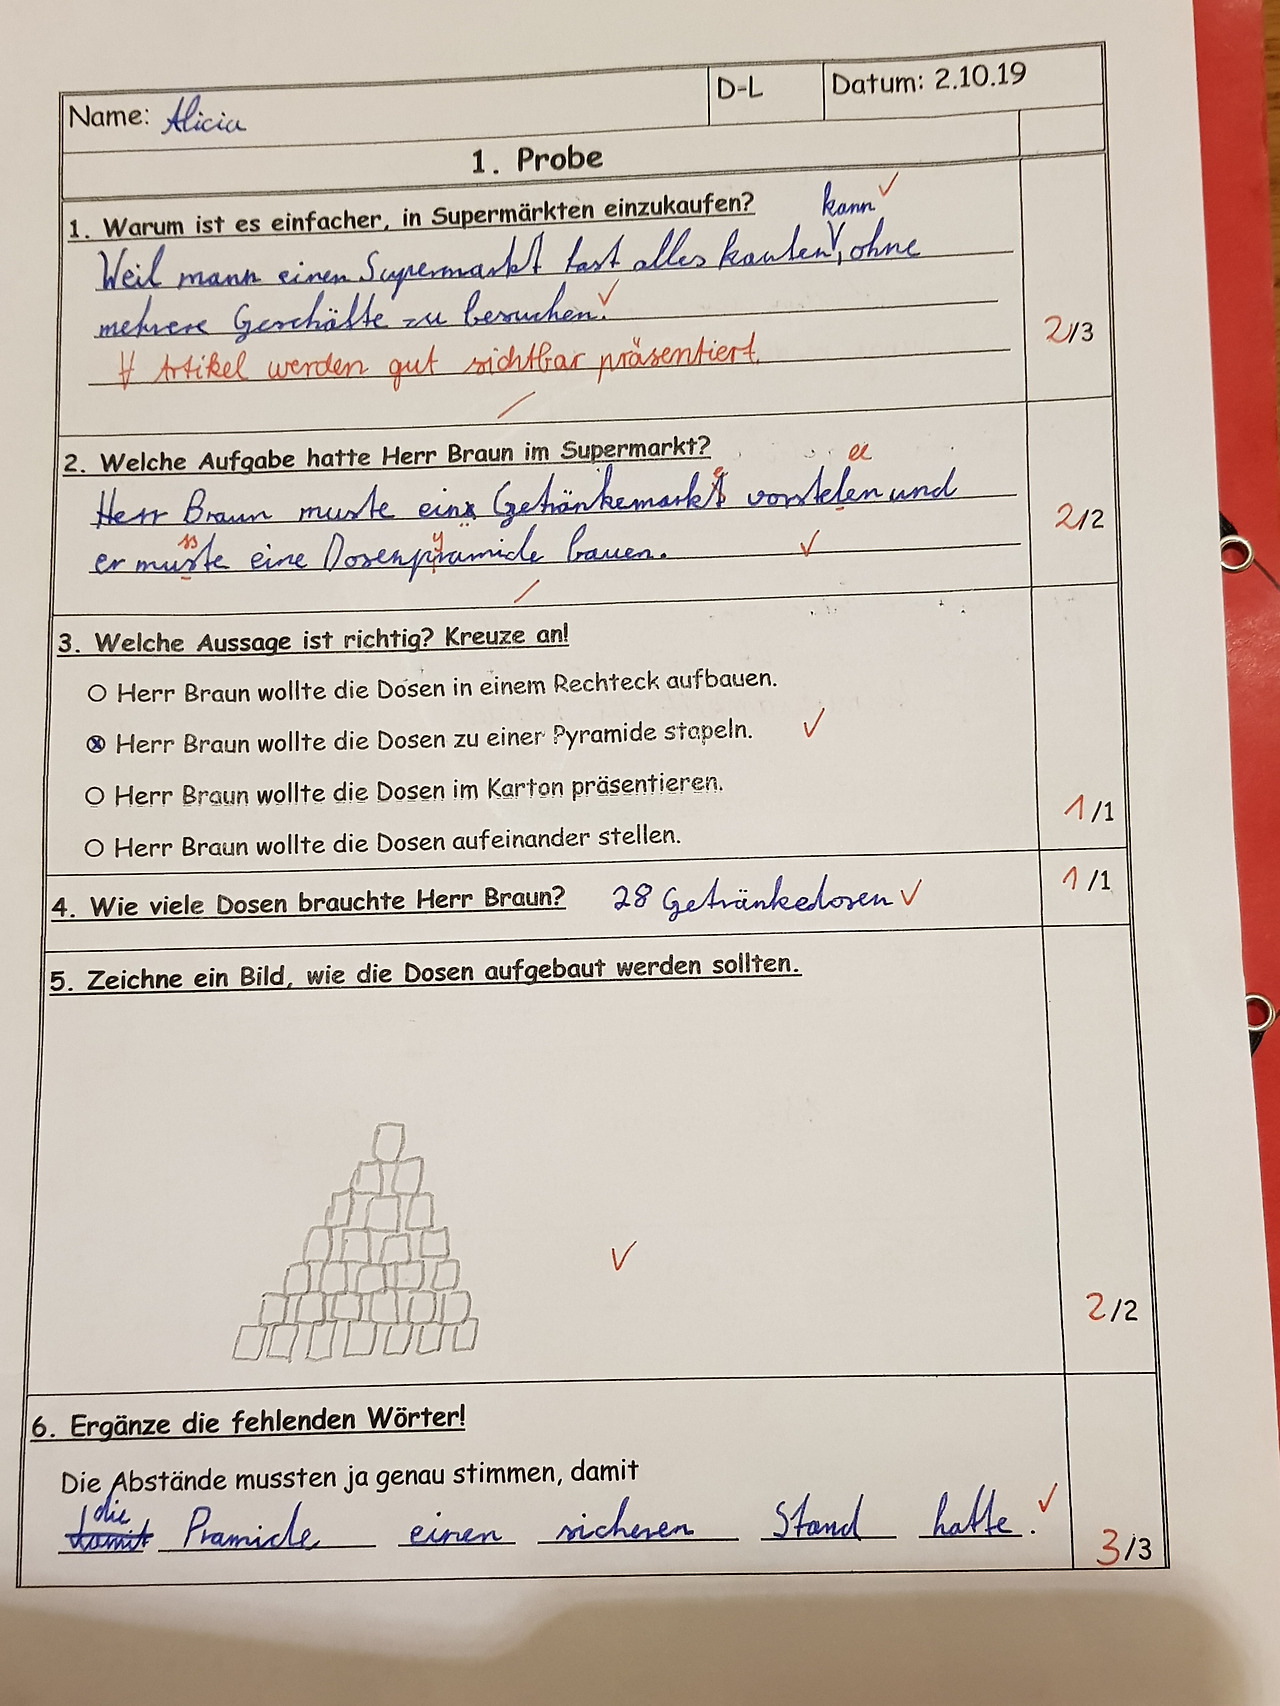 Name: Alicia D-L Datum: 2.10.19
1. Probe
1. Warum ist es einfacher, in Supermärkten einzukaufen? kann
Weil mann einen Supermarkt fast alles kaufen, ohne
mehrere Geschäfte zu besuchen.
Artikel werden gut sichtbar präsentiert.
2/3
2. Welche Aufgabe hatte Herr Braun im Supermarkt?
ll
Herr Braun muste ein Getränkemarkt vorstelen und
2/2
ss y
er muste eine Dosenpramide bauen.
3. Welche Aussage ist richtig? Kreuze an!
Herr Braun wollte die Dosen in einem Rechteck aufbauen.
Herr Braun wollte die Dosen zu einer Pyramide stapeln.
Herr Braun wollte die Dosen im Karton präsentieren.
Herr Braun wollte die Dosen aufeinander stellen.
1/1
4. Wie viele Dosen brauchte Herr Braun? 28 Getränkedosen 1/1
5. Zeichne ein Bild, wie die Dosen aufgebaut werden sollten.
2/2
6. Ergänze die fehlenden Wörter!
Die Abstände mussten ja genau stimmen, damit
die
damit Pramide einen sicheren Stand hatte.
3/3